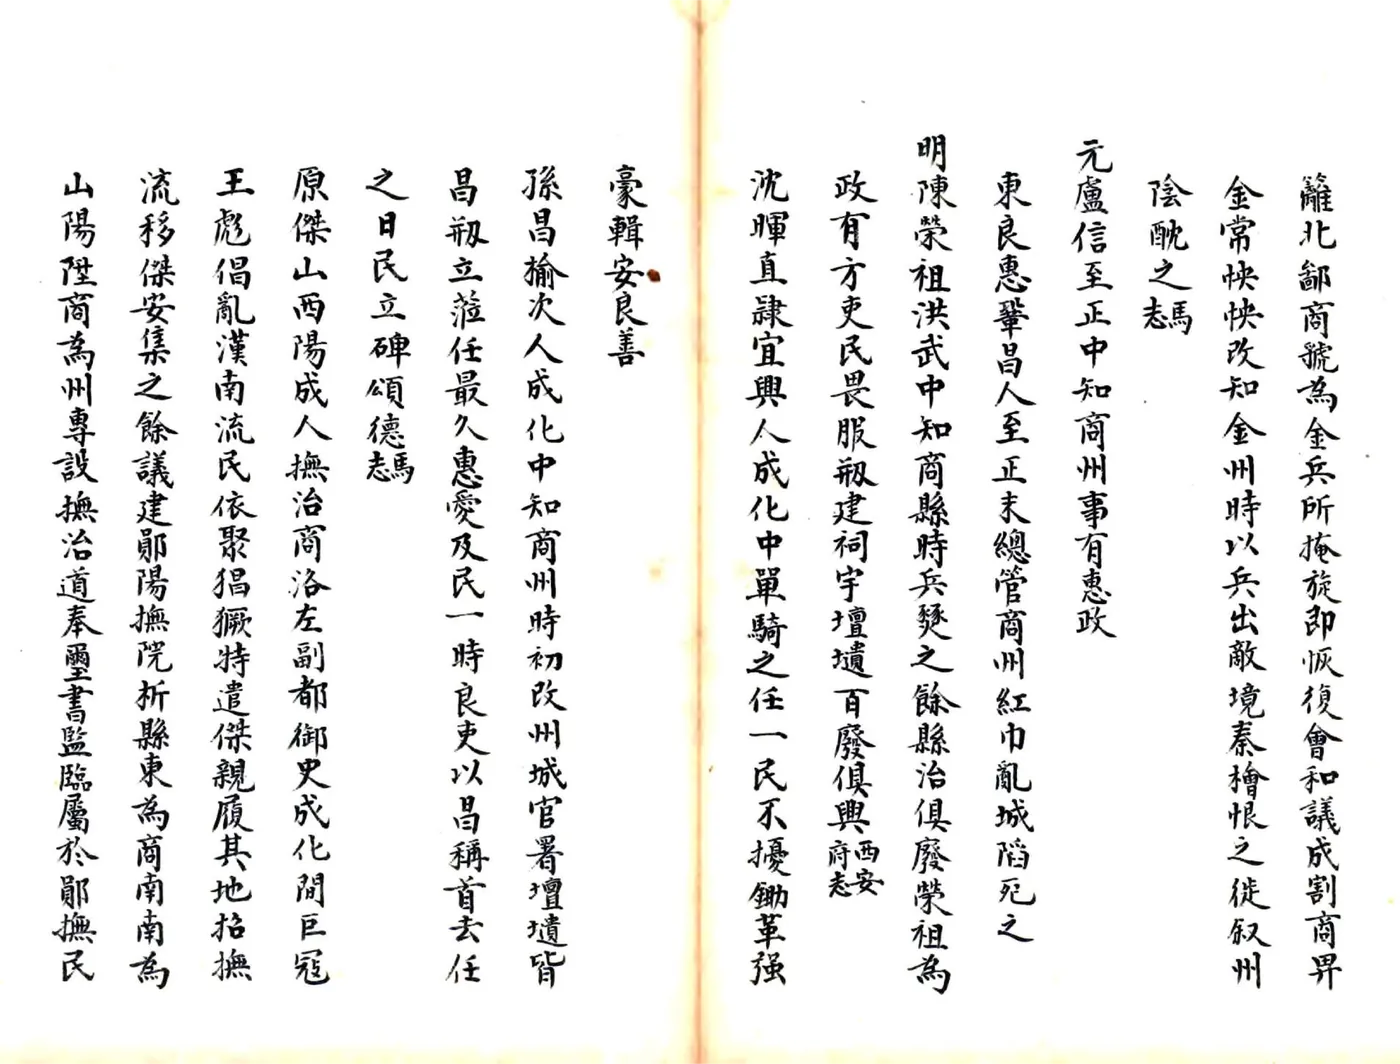 籬北鄙商虢為金兵所掩旋即恢復會和議成割商畀
金常怏怏改知金州時以兵出敵境秦檜恨之徙叙州
陰酖之馬志
元盧信至正中知商州事有惠政
東良惠鞏昌人至正末總管商州紅巾亂城陷死之
明陳榮祖洪武中知商縣時兵燹之餘縣治俱廢榮祖為
政有方吏民畏服剏建祠宇壇壝百廢俱興西安府志
沈暉直隸宜興人成化中單騎之任一民不擾鋤革强
豪輯安良善
孫昌榆次人成化中知商州時初改州城官署壇壝皆
昌剏立蒞任最久惠愛及民一時良吏以昌稱首去任
之日民立碑頌德馬志
原傑山西陽成人撫治商洛左副都御史成化間巨冦
王彪倡亂漢南流民依聚猖獗特遣傑親履其地招撫
流移傑安集之餘議建鄖陽撫院析縣東為商南南為
山陽陞商為州專設撫治道奉璽書監臨屬於鄖撫民